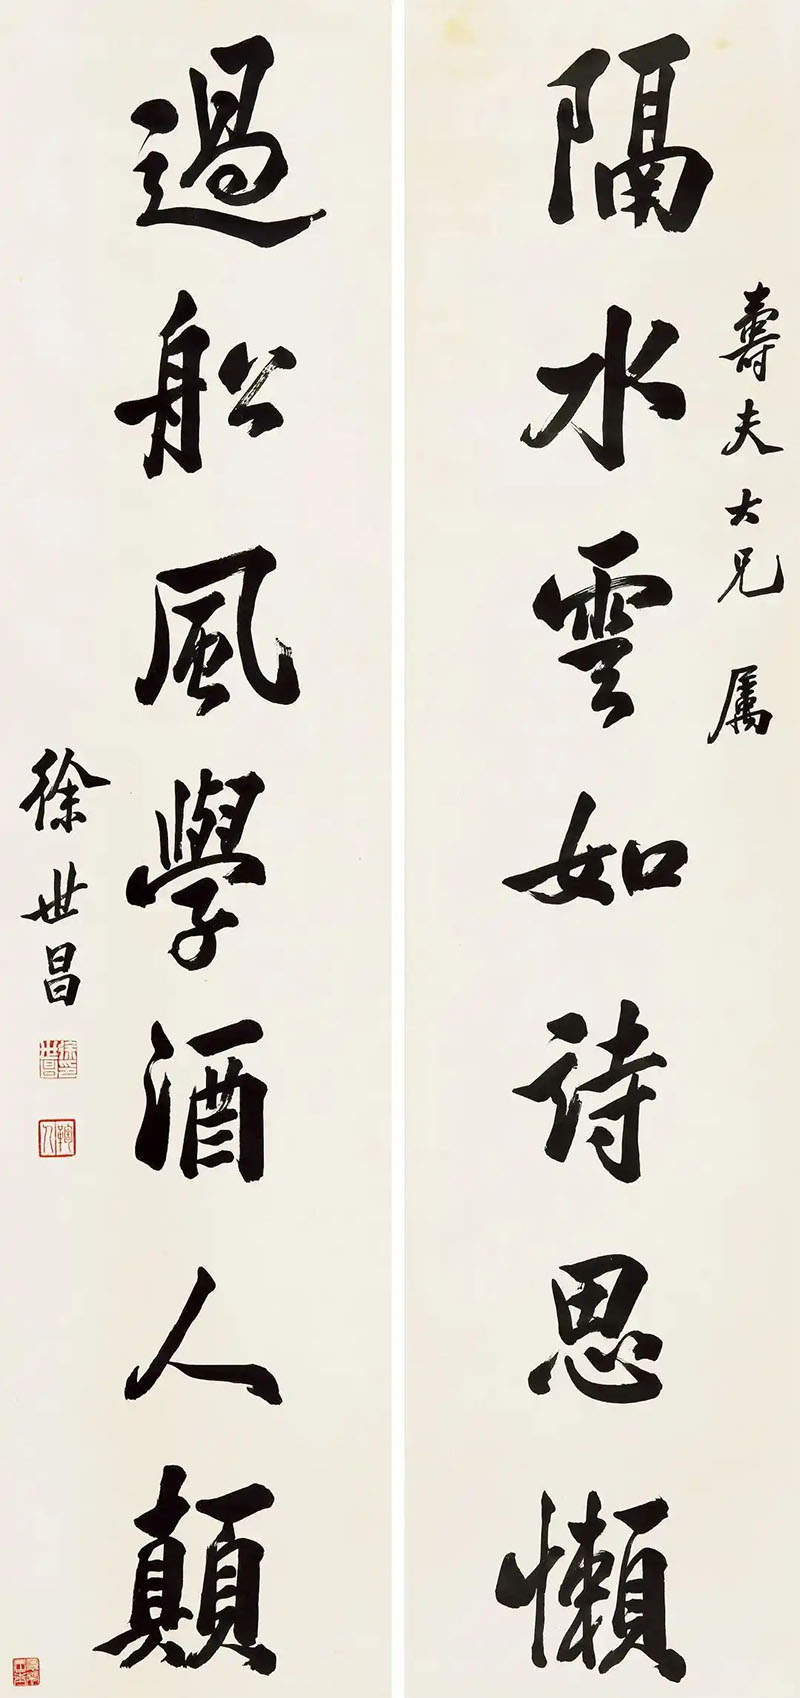 壽夫大兄屬
隔水雲如詩思懶
過船風學酒人顛
徐世昌